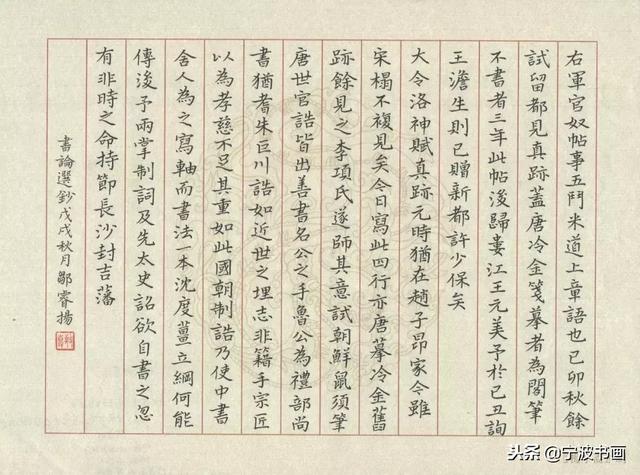 右軍官奴帖事五鬥米道上章語也已卯秋餘
試留都見真跡蓋唐冷金箋摹者為閣筆
不書者三年此帖後歸婁江王元美予於己丑詢
王澹生則已贈新都許少保矣
大令洛神賦真跡元時猶在趙子昂家今雖
宋榻不複見矣今日寫此四行亦唐摹冷金舊
跡餘見之李項氏遂師其意試朝鮮鼠須筆
唐世官誥皆出善書名公之手魯公為禮部尚
書猶耆朱巨川誥如近世之埋志非籍手宗匠
以為孝慈不足其重如此國朝制誥乃使中書
舍人為之寫軸而書法一本沈度薑立綱何能
傳後予兩掌制詞及先太史詔欲自書之忽
有非時之命持節長沙封吉藩
書論選鈔戊戌秋月鄒睿揚
头条@宁波书画